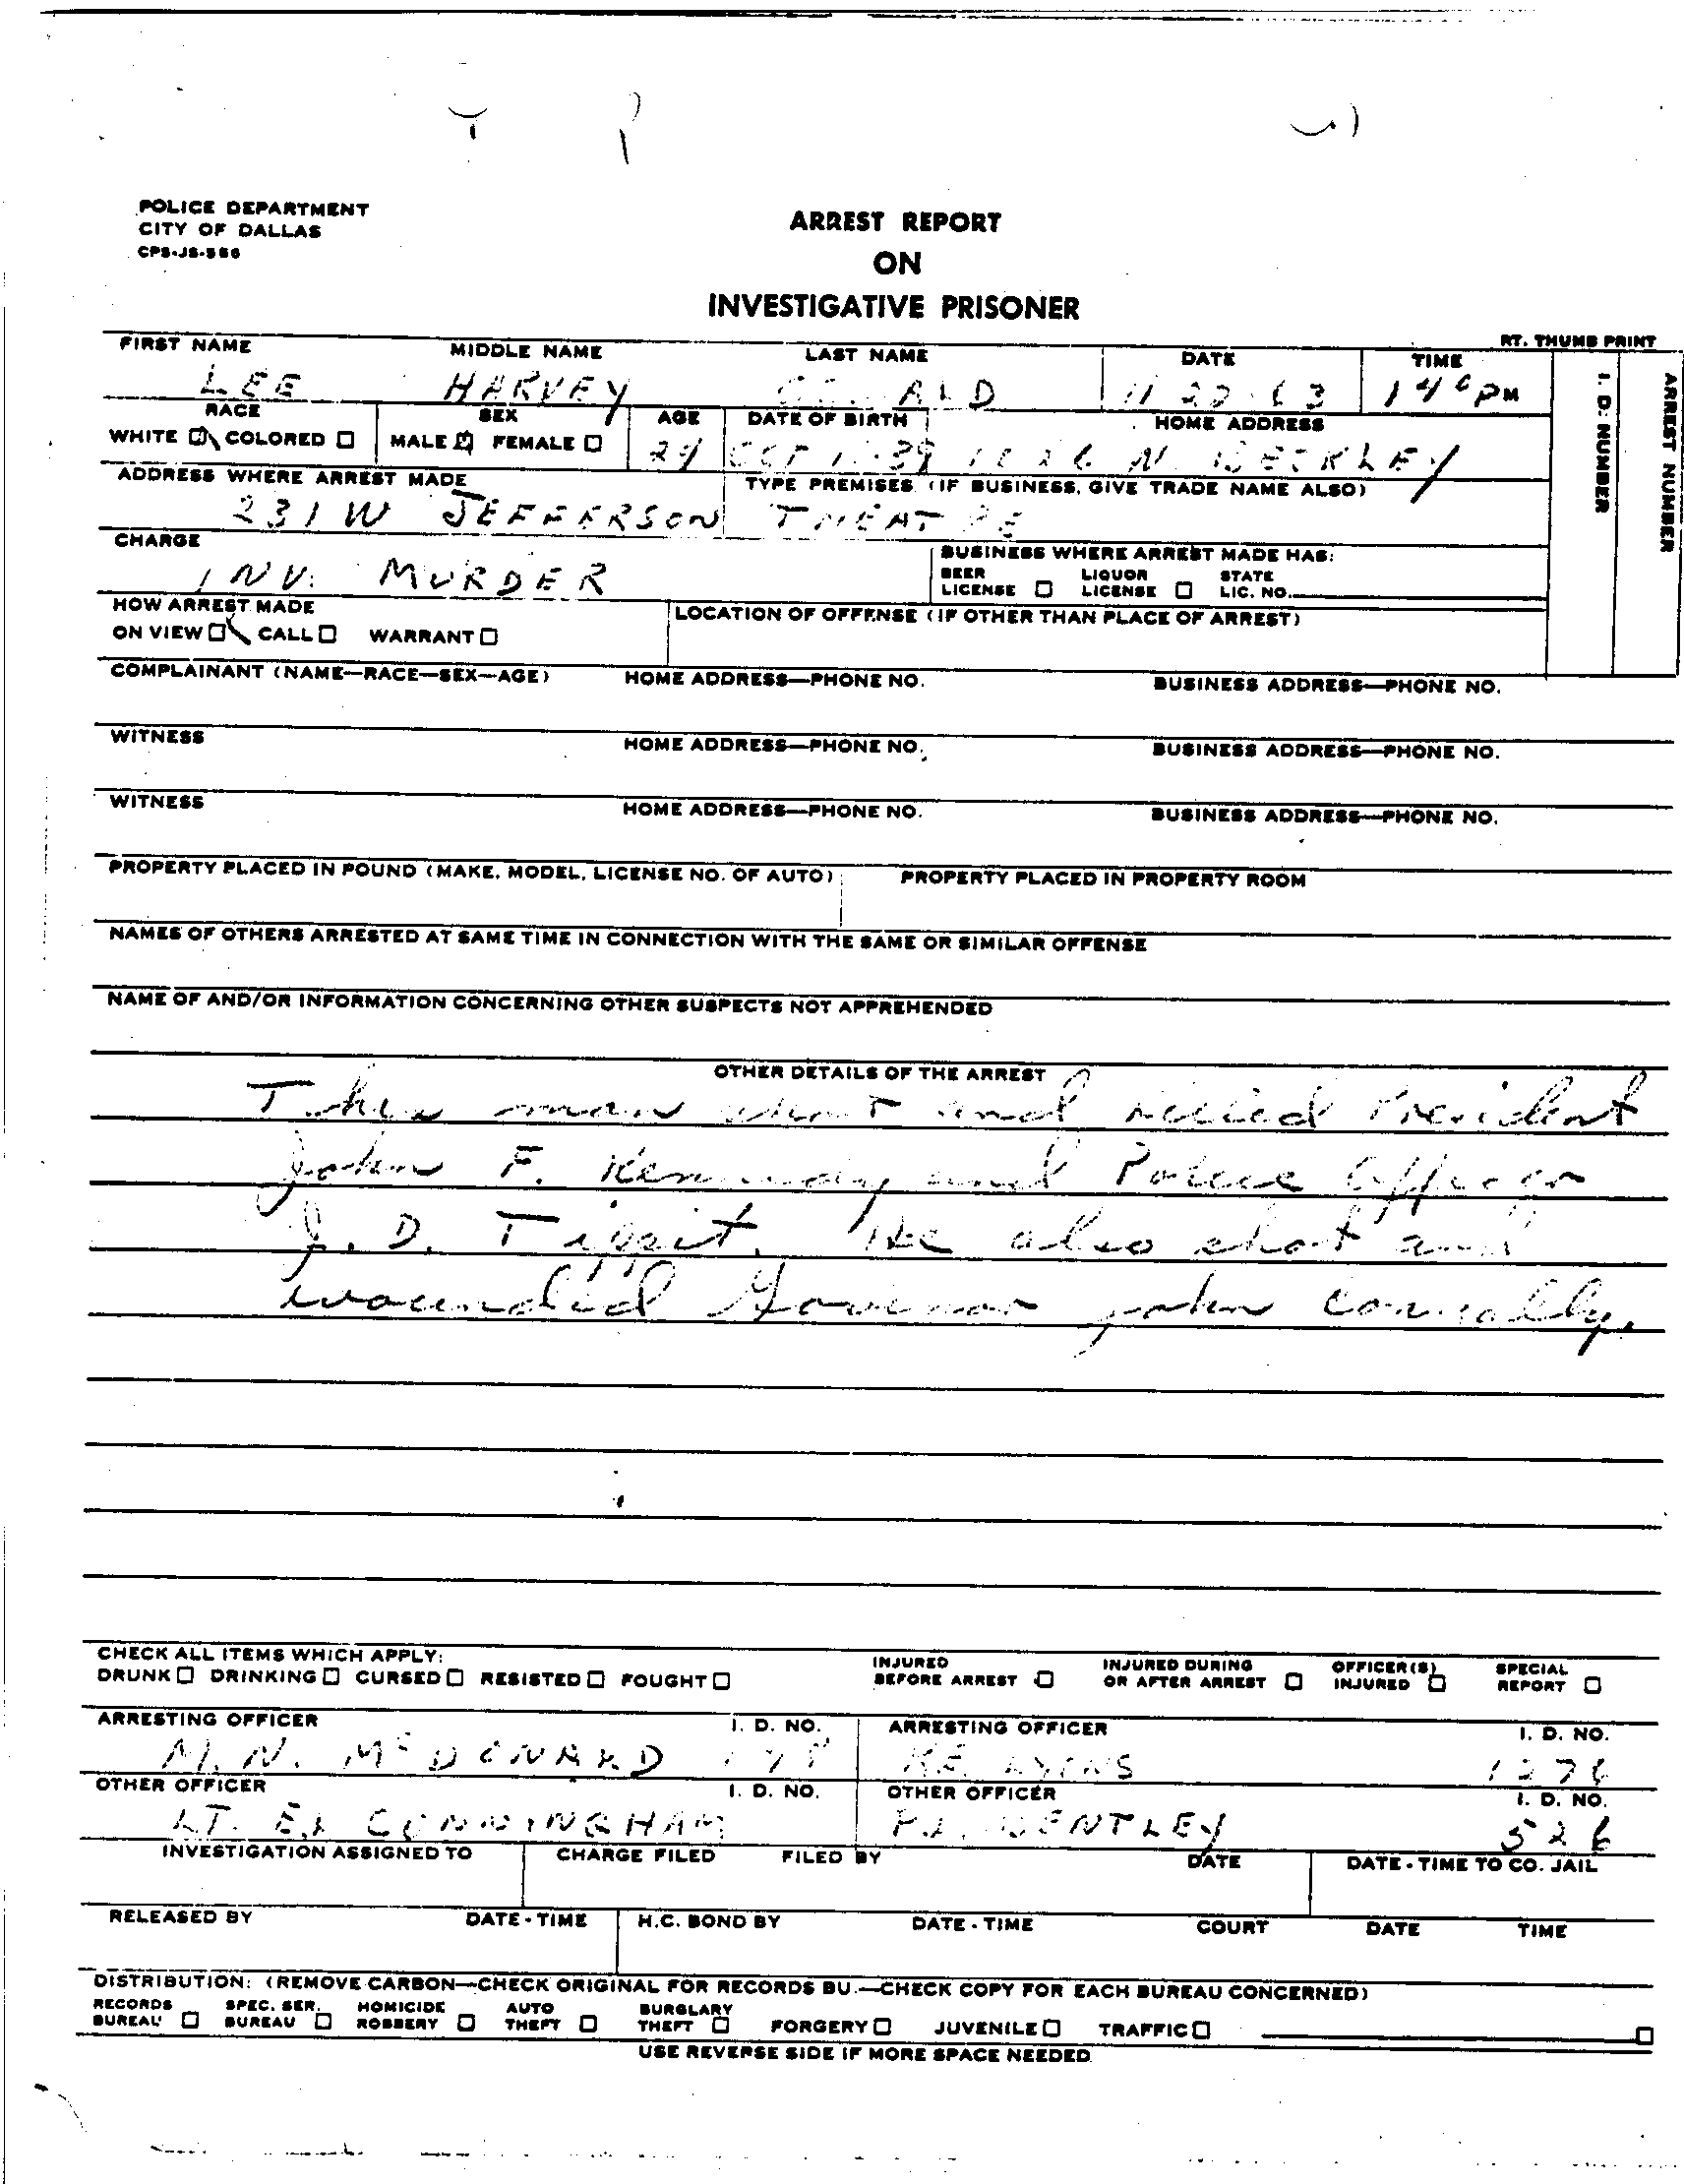 POLICE DEPARTMENT
CITY OF DALLAS
CPS-JS-566
ARREST REPORT
ON
INVESTIGATIVE PRISONER
FIRST NAME MIDDLE NAME LAST NAME DATE TIME RT. THUMB PRINT
LEE HARVEY 11 22 63 1 40 PM
RACE SEX AGE DATE OF BIRTH HOME ADDRESS
WHITE ☒ COLORED ☐ MALE ☒ FEMALE ☐ 24 OCT 39 1026 N. BECKLEY
ADDRESS WHERE ARREST MADE TYPE PREMISES (IF BUSINESS, GIVE TRADE NAME ALSO)
231 W JEFFERSON THEATRE
CHARGE BUSINESS WHERE ARREST MADE HAS:
INV. MURDER BEER LICENSE ☐ LIQUOR LICENSE ☐ STATE LIC. NO.
HOW ARREST MADE LOCATION OF OFFENSE (IF OTHER THAN PLACE OF ARREST)
ON VIEW ☒ CALL ☐ WARRANT ☐
I. D. NUMBER
ARREST NUMBER
COMPLAINANT (NAME—RACE—SEX—AGE) HOME ADDRESS—PHONE NO. BUSINESS ADDRESS—PHONE NO.
WITNESS HOME ADDRESS—PHONE NO. BUSINESS ADDRESS—PHONE NO.
WITNESS HOME ADDRESS—PHONE NO. BUSINESS ADDRESS—PHONE NO.
PROPERTY PLACED IN POUND (MAKE, MODEL, LICENSE NO. OF AUTO) PROPERTY PLACED IN PROPERTY ROOM
NAMES OF OTHERS ARRESTED AT SAME TIME IN CONNECTION WITH THE SAME OR SIMILAR OFFENSE
NAME OF AND/OR INFORMATION CONCERNING OTHER SUSPECTS NOT APPREHENDED
OTHER DETAILS OF THE ARREST
This man shot and killed President
John F. Kennedy and Police Officer
J. D. Tippit. He also shot and
wounded Governor John Connally.
CHECK ALL ITEMS WHICH APPLY:
DRUNK ☐ DRINKING ☐ CURSED ☐ RESISTED ☐ FOUGHT ☐ INJURED BEFORE ARREST ☐ INJURED DURING OR AFTER ARREST ☐ OFFICER(S) INJURED ☐ SPECIAL REPORT ☐
ARRESTING OFFICER I. D. NO. ARRESTING OFFICER I. D. NO.
M. N. McDONALD K.E. LYONS 1276
OTHER OFFICER I. D. NO. OTHER OFFICER I. D. NO.
LT. E.L CUNNINGHAM P.L. BENTLEY 526
INVESTIGATION ASSIGNED TO CHARGE FILED FILED BY DATE DATE - TIME TO CO. JAIL
RELEASED BY DATE - TIME H.C. BOND BY DATE - TIME COURT DATE TIME
DISTRIBUTION: (REMOVE CARBON—CHECK ORIGINAL FOR RECORDS BU.—CHECK COPY FOR EACH BUREAU CONCERNED)
RECORDS BUREAU ☐ SPEC. SER. BUREAU ☐ HOMICIDE ROBBERY ☐ AUTO THEFT ☐ BURGLARY THEFT ☐ FORGERY ☐ JUVENILE ☐ TRAFFIC ☐ ☐
USE REVERSE SIDE IF MORE SPACE NEEDED